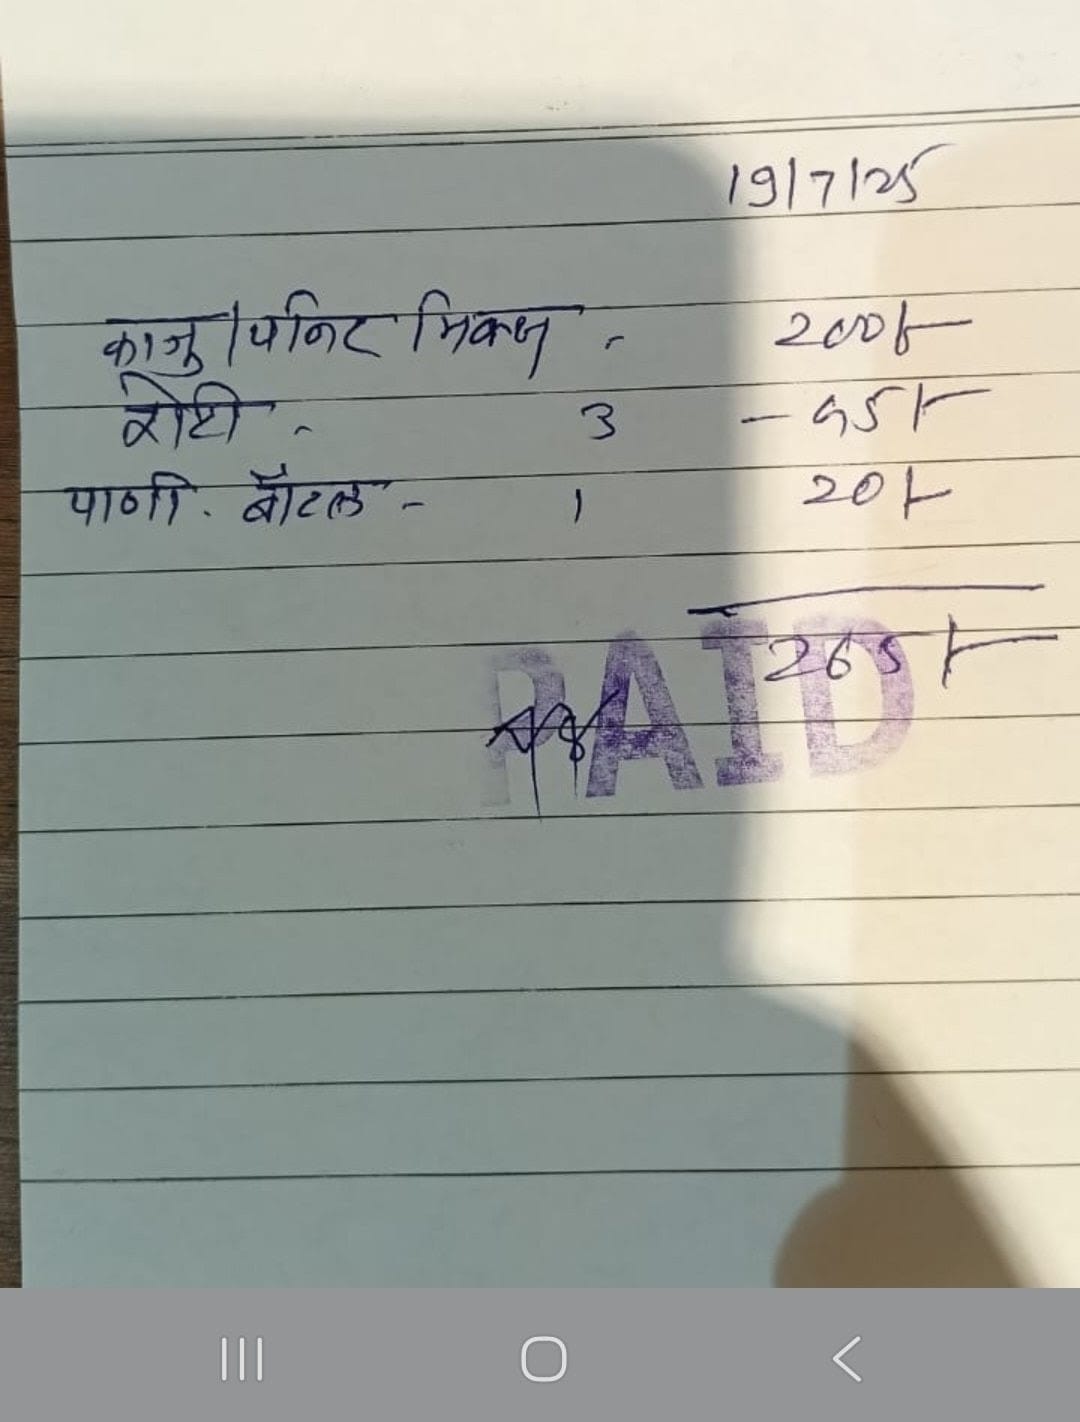 19/7/25
काजु/पनिर मिक्स - 200/-
रोटी - 3 - 45/-
पाणी. बॉटल - 1 20/-
265/-
PAID